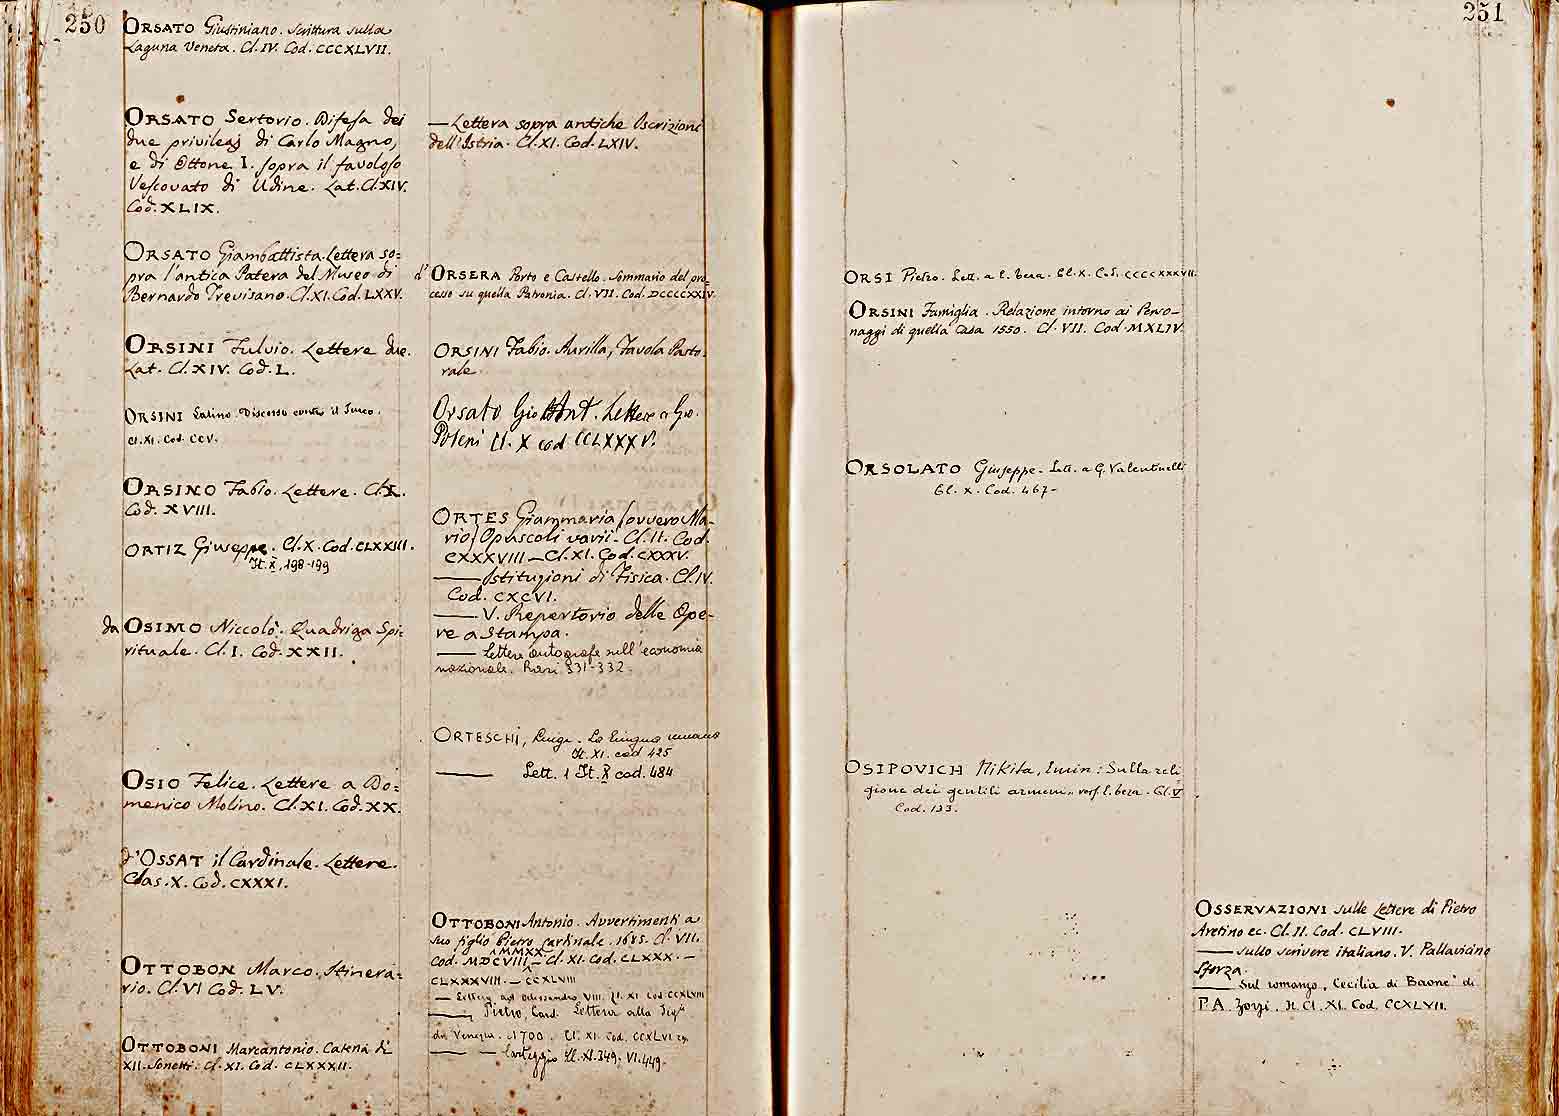 250
ORSATO Giustiniano. Scrittura sulla
Laguna Veneta. Cl. IV. Cod. CCCXLVII.
ORSATO Sertorio. Difesa dei
due privilegj di Carlo Magno,
e di Ottone I. sopra il favoloso
Vescovato di Udine. Lat. Cl. XIV.
Cod. XLIX.
ORSATO Giambattista. Lettera so=
pra l'antica Patera del Museo di
Bernardo Trevisano. Cl. XI. Cod. LXXV.
ORSINI Fulvio. Lettere due.
Lat. Cl. XIV. Cod. L.
ORSINI Latino. Discorso contro il Turco.
Cl. XI. Cod. CCV.
ORSINO Fabio. Lettere. Cl. X.
Cod. XVIII.
ORTIZ Giuseppe. Cl. X. Cod. CLXXIII.
It. X, 198-199
da OSIMO Niccolò. Quadriga Spi=
rituale. Cl. I. Cod. XXII.
OSIO Felice. Lettere a Do=
menico Molino. Cl. XI. Cod. XX.
d'OSSAT il Cardinale. Lettere.
Clas. X. Cod. CXXXI.
OTTOBON Marco. Itinera=
rio. Cl. VI Cod. LV.
OTTOBONI Marcantonio. Catena di
XII. Sonetti. Cl. XI. Cod. CLXXXII.
— Lettera sopra antiche Iscrizioni
dell'Istria. Cl. XI. Cod. LXIV.
d' ORSERA Porto e Castello. Sommario del pro=
cesso su quella Patronia. Cl. VII. Cod. DCCCCXXIV.
ORSINI Fabio. Aurilla, Favola Pasto=
rale.
Orsato Gio Ant. Lettere a Gio.
Poleni Cl. X cod CCLXXXV.
ORTES Giammaria (ovvero Ma-
rio) Opuscoli varii. Cl. II. Cod.
CXXXVIII — Cl. XI. Cod. CXXXV.
— Istituzioni di Fisica. Cl. IV.
Cod. CXCVI.
— V. Repertorio delle Ope-
re a Stampa.
— Lettere autografe sull'economia
nazionale. Rari 331-332.
ORTESCHI, Luigi. La lingua umana
It. XI. cod 425
— Lett. 1 It. X cod. 484
OTTOBONI Antonio. Avvertimenti a
suo figlio Pietro cardinale. 1685. Cl. VII.
MMXX
Cod. MDCVIII — Cl. XI. Cod. CLXXX. —
CLXXXVIII. — CCXLVIII
— Lettere ad Alessandro VIII. Cl. XI. Cod. CCXLVIII
— Pietro, Card. Lettera alla Sig.ia
di Venezia. 1700. Cl. XI. Cod. CCXLVI
— — Carteggio It. XI. 349. VI. 449.
251
ORSI Pietro. Lett. a l. Cl. X. Cod. CCCCXXXVII.
ORSINI Famiglia. Relazione intorno ai Perso-
naggi di quella Casa 1550. Cl. VII. Cod. MXLIV.
ORSOLATO Giuseppe. Lett. a G. Valentinelli
Cl. X. Cod. 467-
OSIPOVICH Nikita, Emin: Sulla reli
gione dei gentili armeni. Cl. V
Cod. 133.
OSSERVAZIONI sulle Lettere di Pietro
Aretino ec. Cl. II. Cod. CLVIII.
— sullo scrivere italiano. V. Pallavicino
Sforza.
— Sul romanzo, Cecilia di Baone di
P. A. Zorzi. It. Cl. XI. Cod. CCXLVII.